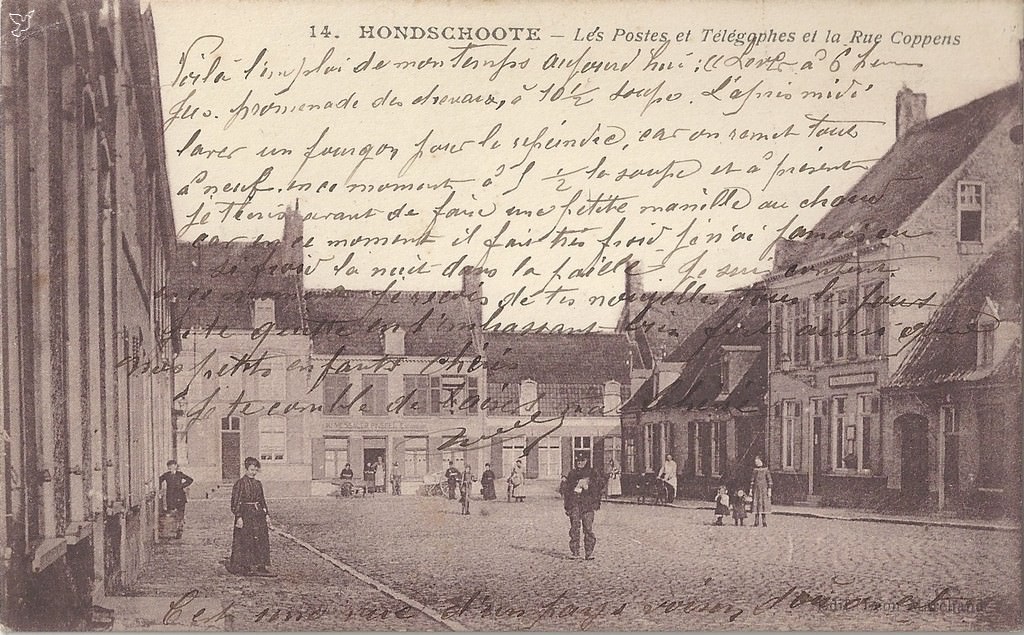 14. HONDSCHOOTE – Les Postes et Télégaphes et la Rue Coppens
Voilà l'emploi de mon temps aujourd'hui: Lever à 6 heu
promenade des chevaux, à 10 ½ soupe. L'après midi
laver un fourgon pour le repeindre, car on remet tout
à neuf en ce moment à 5 ½ la soupe et à présent
je t'écris avant de faire une petite manille au chaud
car en ce moment il fait très froid je n'ai jamais eu
si froid la nuit dans la paille. Je suis content
en ce moment je reçois de tes nouvelles tous les jours
Je te quitte en t'embrassant bien fort ainsi que
mes petits enfants chéris
Je te comble de
Cet une vue d'un pays voisin